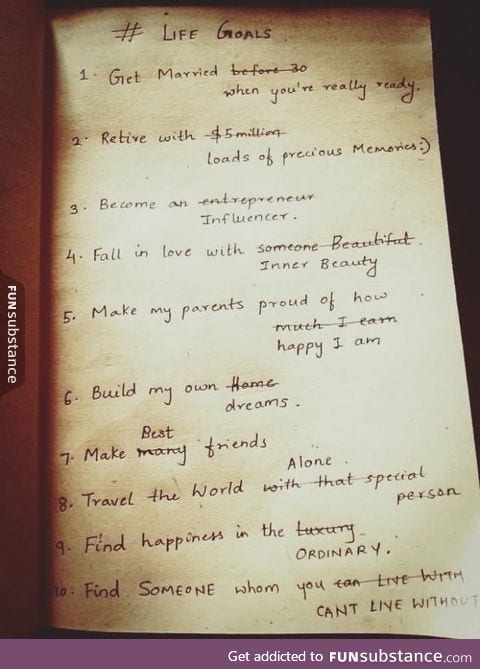 # LIFE GOALS
1. Get Married before 30
when you're really ready.
2. Retire with $5million
loads of precious Memories:)
3. Become an entrepreneur
Influencer.
4. Fall in love with someone Beautiful.
Inner Beauty
5. Make my parents proud of how
much I earn
happy I am
6. Build my own Home
dreams.
Best
7. Make many friends
Alone.
8. Travel the World with that special
person
9. Find happiness in the Luxury
ORDINARY.
10: Find SOMEONE whom you can LIVE WITH
CANT LIVE WITHOUT
FUNsubstance
Get addicted to FUNsubstance.com